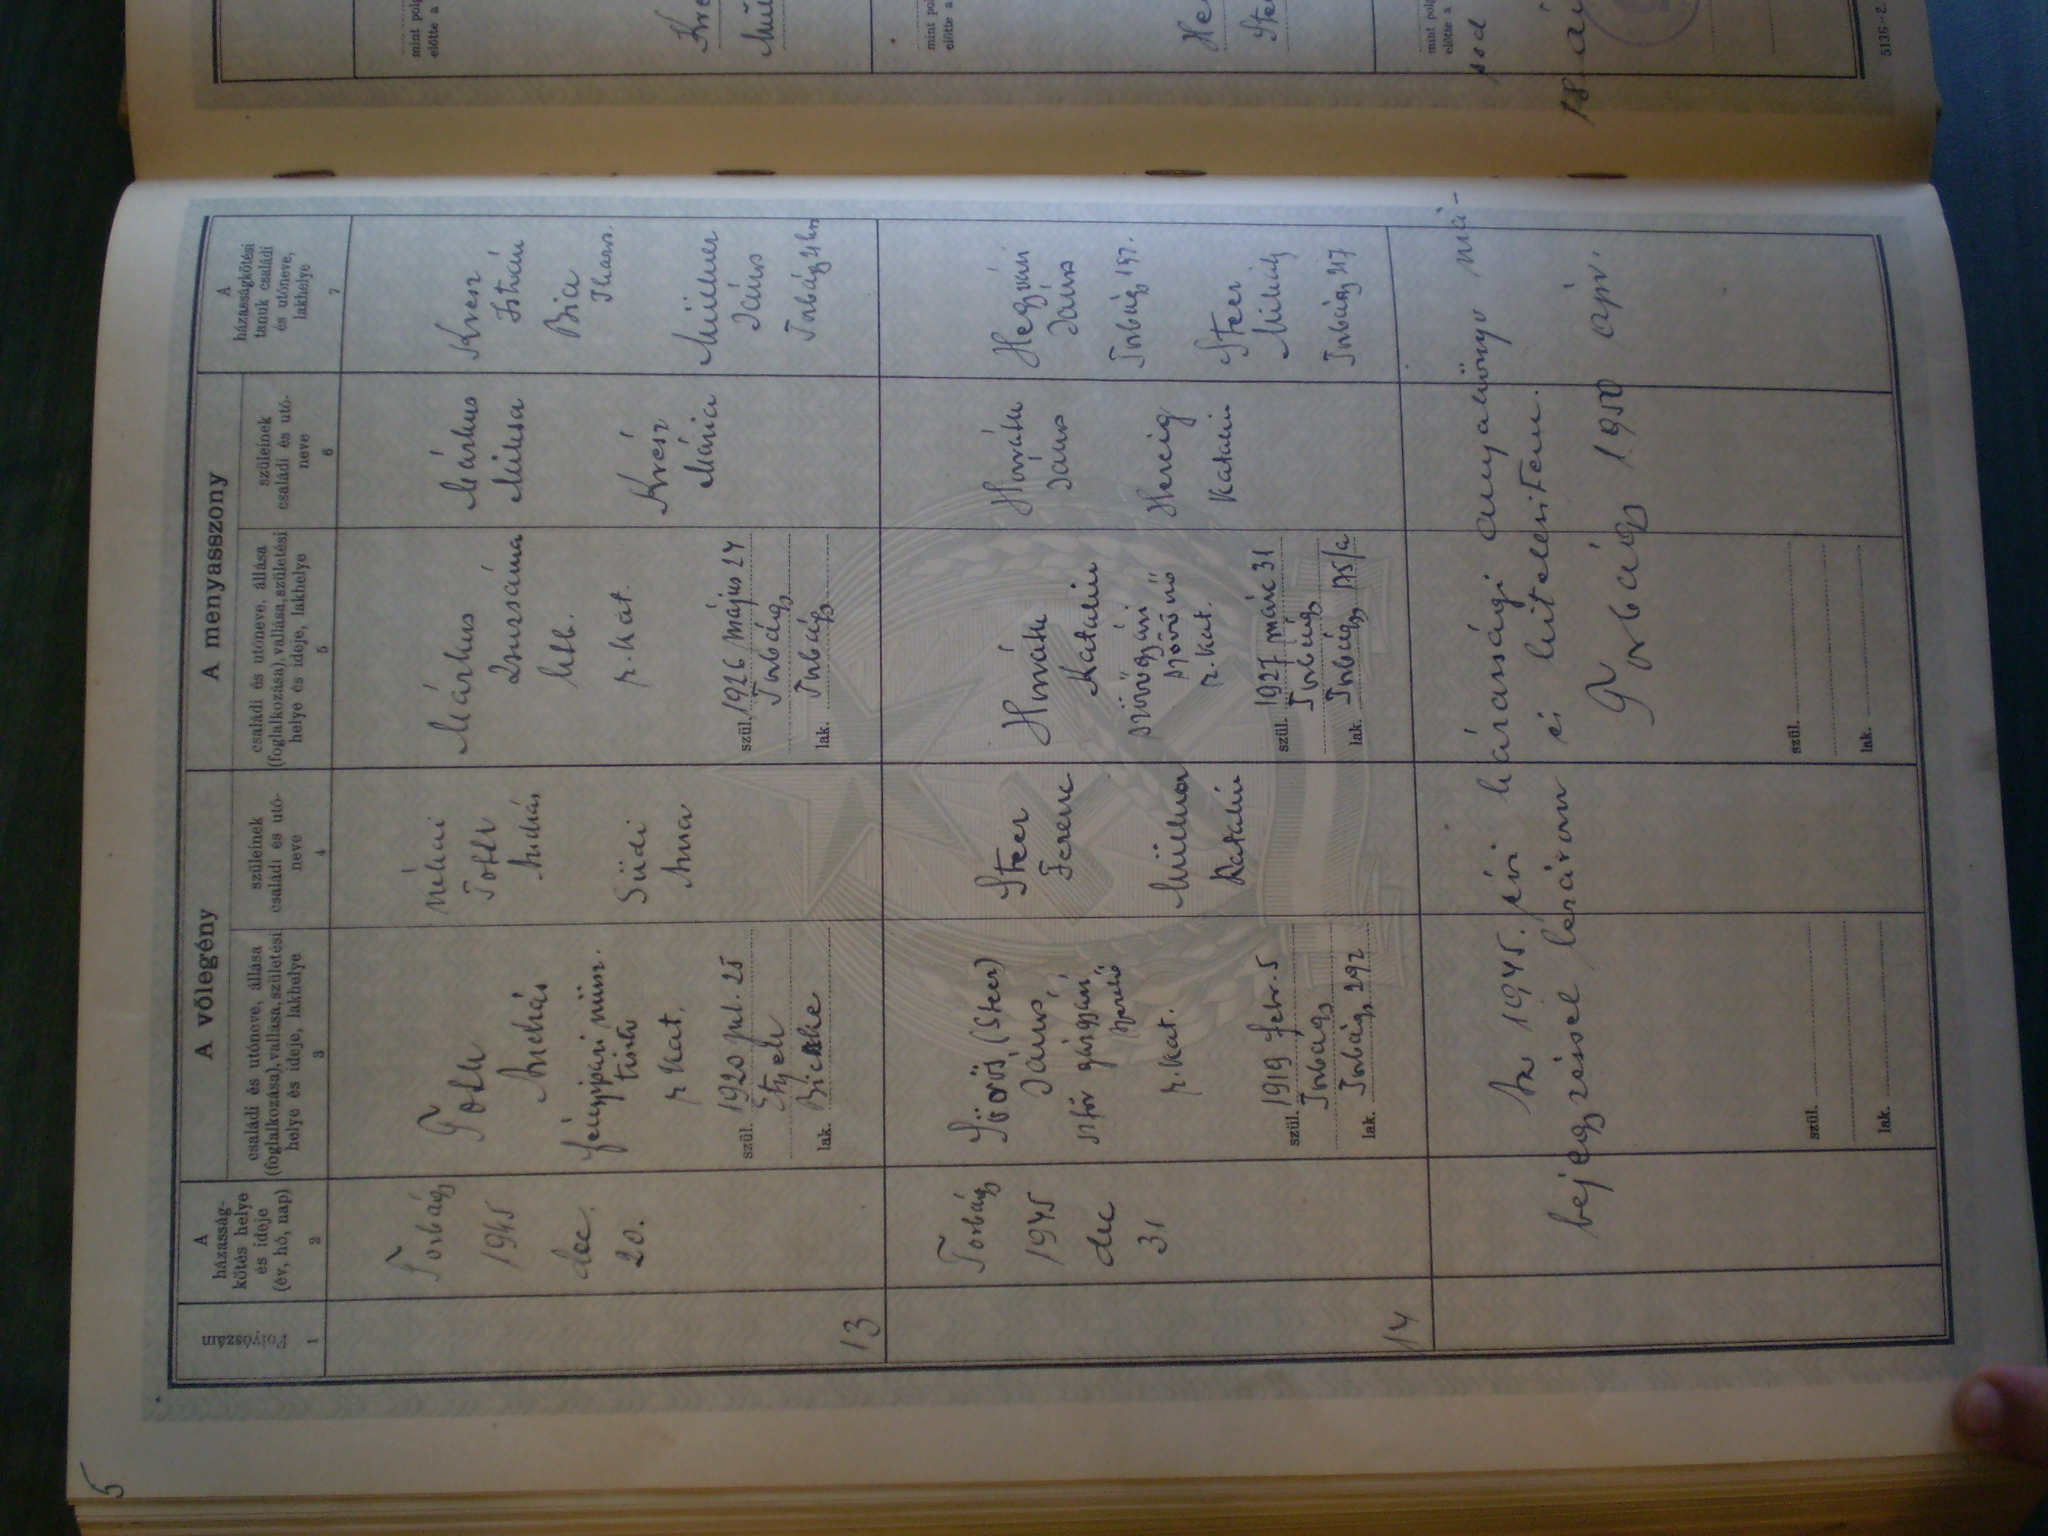 5
Folyószám
1
A
házasság-
kötés helye
és ideje
(év, hó, nap)
2
A vőlegény
családi és utóneve, állása
(foglalkozása), vallása, születési
helye és ideje, lakhelye
3
szüleinek
családi és utó-
neve
4
A menyasszony
családi és utóneve, állása
(foglalkozása), vallása, születési
helye és ideje, lakhelye
5
szüleinek
családi és utó-
neve
6
A
házasságkötési
tanuk családi
és utóneve,
lakhelye
7
13
Torbágy
1945
dec.
20.
Toth
András
fémipari
r. kat.
szül. 1920 jul. 25
Etyek
lak. Bicske
néhai
Toth
András
Südi
Anna
Márkus
Zsuzsánna
htb.
r. kat.
szül. 1926 május 24
Torbágy
lak. Torbágy
Márkus
Miksa
Krész
Mária
Kresz
István
Bia
Müller
János
Torbágy
14
Torbágy
1945
dec
31
Sörös (Steer)
János
r. kat.
szül. 1919 febr. 5
Torbágy
lak. Torbágy 292
Steer
Ferenc
Katalin
Horváth
Katalin
szövőgyári
szövőnő
r. kat.
szül. 1927 márc 31
Torbágy
lak. Torbágy 175/a
Horváth
János
Herczig
Katalin
Hegyvári
János
Torbágy 197.
Steer
Mihály
Torbágy 217
Az 1945. évi házassági anyakönyv má-
bejegyzéssel lezárom és hitelesitem.
Torbágy 1950 ápr.
szül.
lak.
szül.
lak.
mint polg
előtte a
mint pol
előtte a
mint pol
előtte a
sod
18.
5136-2.